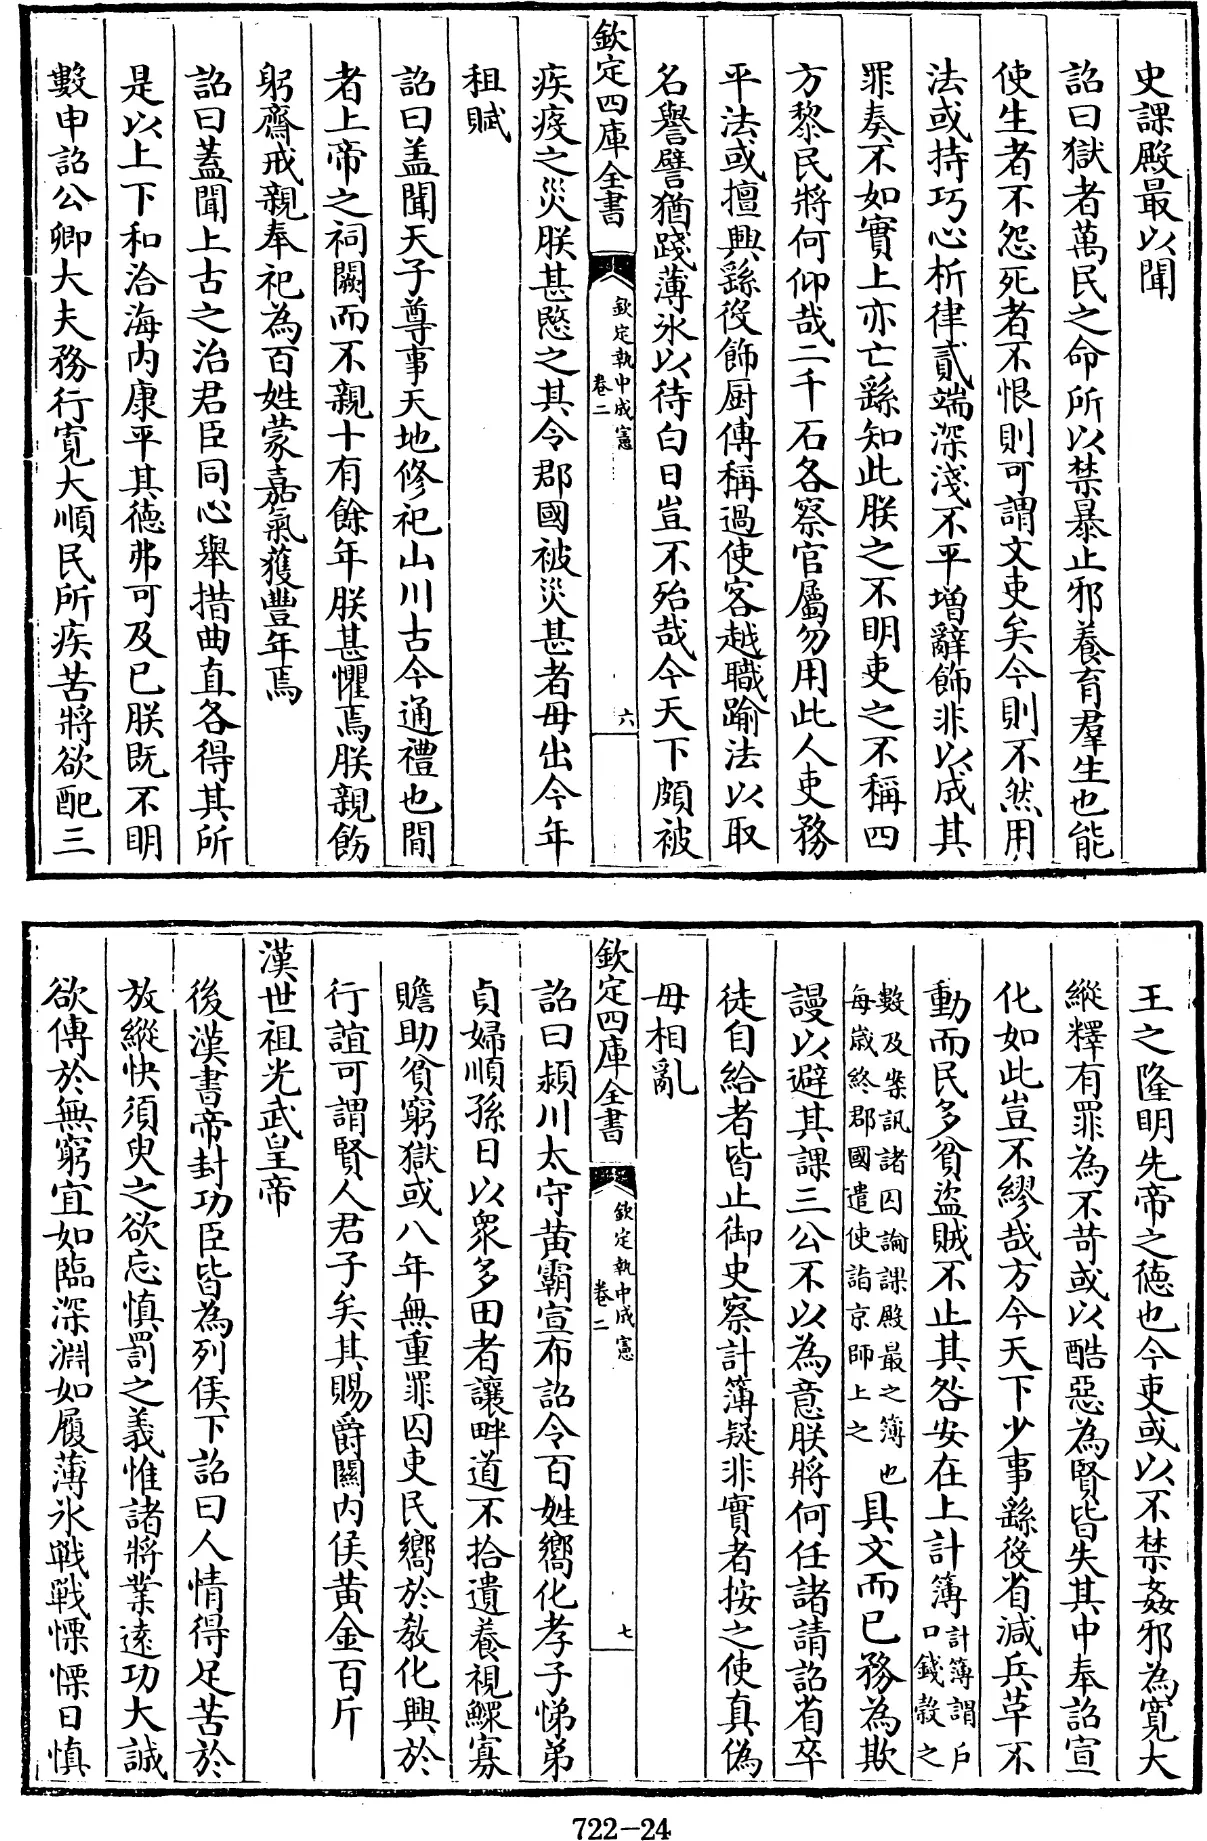 史課殿最以聞
詔曰獄者萬民之命所以禁暴止邪養育羣生也能
使生者不怨死者不恨則可謂文吏矣今則不然用
法或持巧心析律貳端深淺不平增辭飾非以成其
罪奏不如實上亦亡繇知此朕之不明吏之不稱四
方黎民將何仰哉二千石各察官屬勿用此人吏務
平法或擅興繇役飾厨傳稱過使客越職踰法以取
名譽譬猶踐薄氷以待白日豈不殆哉今天下頗被
欽定四庫全書
欽定執中成憲
卷二
六
疾疫之災朕甚愍之其令郡國被災甚者毋出今年
租賦
詔曰盖聞天子尊事天地修祀山川古今通禮也間
者上帝之祠闕而不親十有餘年朕甚懼焉朕親飭
躬齋戒親奉祀為百姓蒙嘉氣獲豐年焉
詔曰蓋聞上古之治君臣同心舉措曲直各得其所
是以上下和洽海内康平其徳弗可及已朕既不明
數申詔公卿大夫務行寛大順民所疾苦將欲配三
王之隆明先帝之徳也今吏或以不禁姦邪為寛大
縱釋有罪為不苛或以酷惡為賢皆失其中奉詔宣
化如此豈不繆哉方今天下少事繇役省減兵革不
動而民多貧盗賊不止其咎安在上計簿計簿謂户
口錢榖之
數及案訊諸囚論課殿最之簿也
每嵗終郡國遣使詣京師上之具文而已務為欺
謾以避其課三公不以為意朕將何任諸請詔省卒
徒自給者皆止御史察計簿疑非實者按之使真偽
毋相亂
欽定四庫全書
欽定執中成憲
卷二
七
詔曰潁川太守黄霸宣布詔令百姓嚮化孝子悌弟
貞婦順孫日以衆多田者讓畔道不拾遺養視鰥寡
贍助貧窮獄或八年無重罪囚吏民嚮於教化興於
行誼可謂賢人君子矣其賜爵關内侯黄金百斤
漢世祖光武皇帝
後漢書帝封功臣皆為列侯下詔曰人情得足苦於
放縱快須臾之欲忘慎罰之義惟諸將業逺功大誠
欲傳於無窮宜如臨深淵如履薄氷戰戰慄慄日慎
722-24